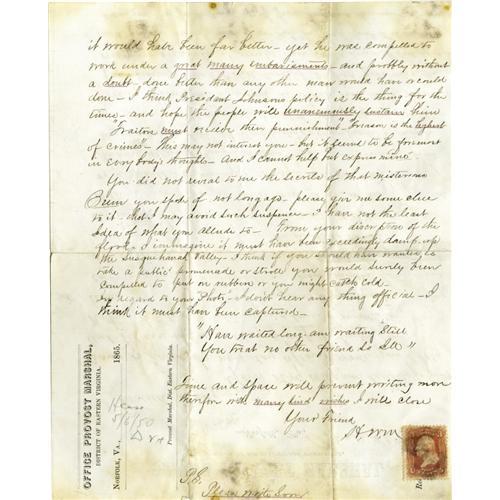 it would have been far better - yet he was compelled to
work under a great many embarisments - and probbly without
a doubt - done better than any other man would have or could
done - I think President Johnsons policy is the thing for the
times - and hope the people will unanimously sustain him
"Traitors must receive their punnishment" "Treason is the highest
of crimes" - This may not interest you - but it seems to be foremost
in everybodys thoughts - and I cannot help but express mine
You did not reveal to me the secrets of that misterious
you spoke of not long ago - please give me some clue
to it - that I may avoid such suspence - I have not the least
idea of what you allude to - From your discription of the
flood - I immagine it must have been exceedingly damp - up
the Susquehanna Valley - I think if you should have wanted to
take a public promenade or stroll you would surely been
compelled to put on rubbers or you might catch cold -
In regard to your Photo - I dont hear any thing official - I
think it must have been captured -
"Have waited long - am waiting still
You treat no other friend so Ill"
Time and space will prevent writing more
therefore with many kind wishes I will close
Your Friend
P.S.
Please write Soon
OFFICE PROVOST MARSHAL,
DISTRICT OF EASTERN VIRGINIA.
NORFOLK, VA., 1865.
Provost Marshal, Dist. Eastern Virginia.
5/6/50